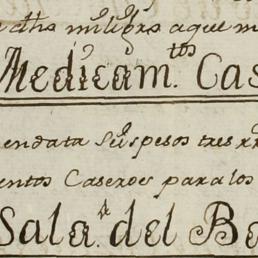 dhos milagro aque m
Medicam.tos Cas
endata Suspesos tres rr
entos Caseros para los
Sala.a del Ba